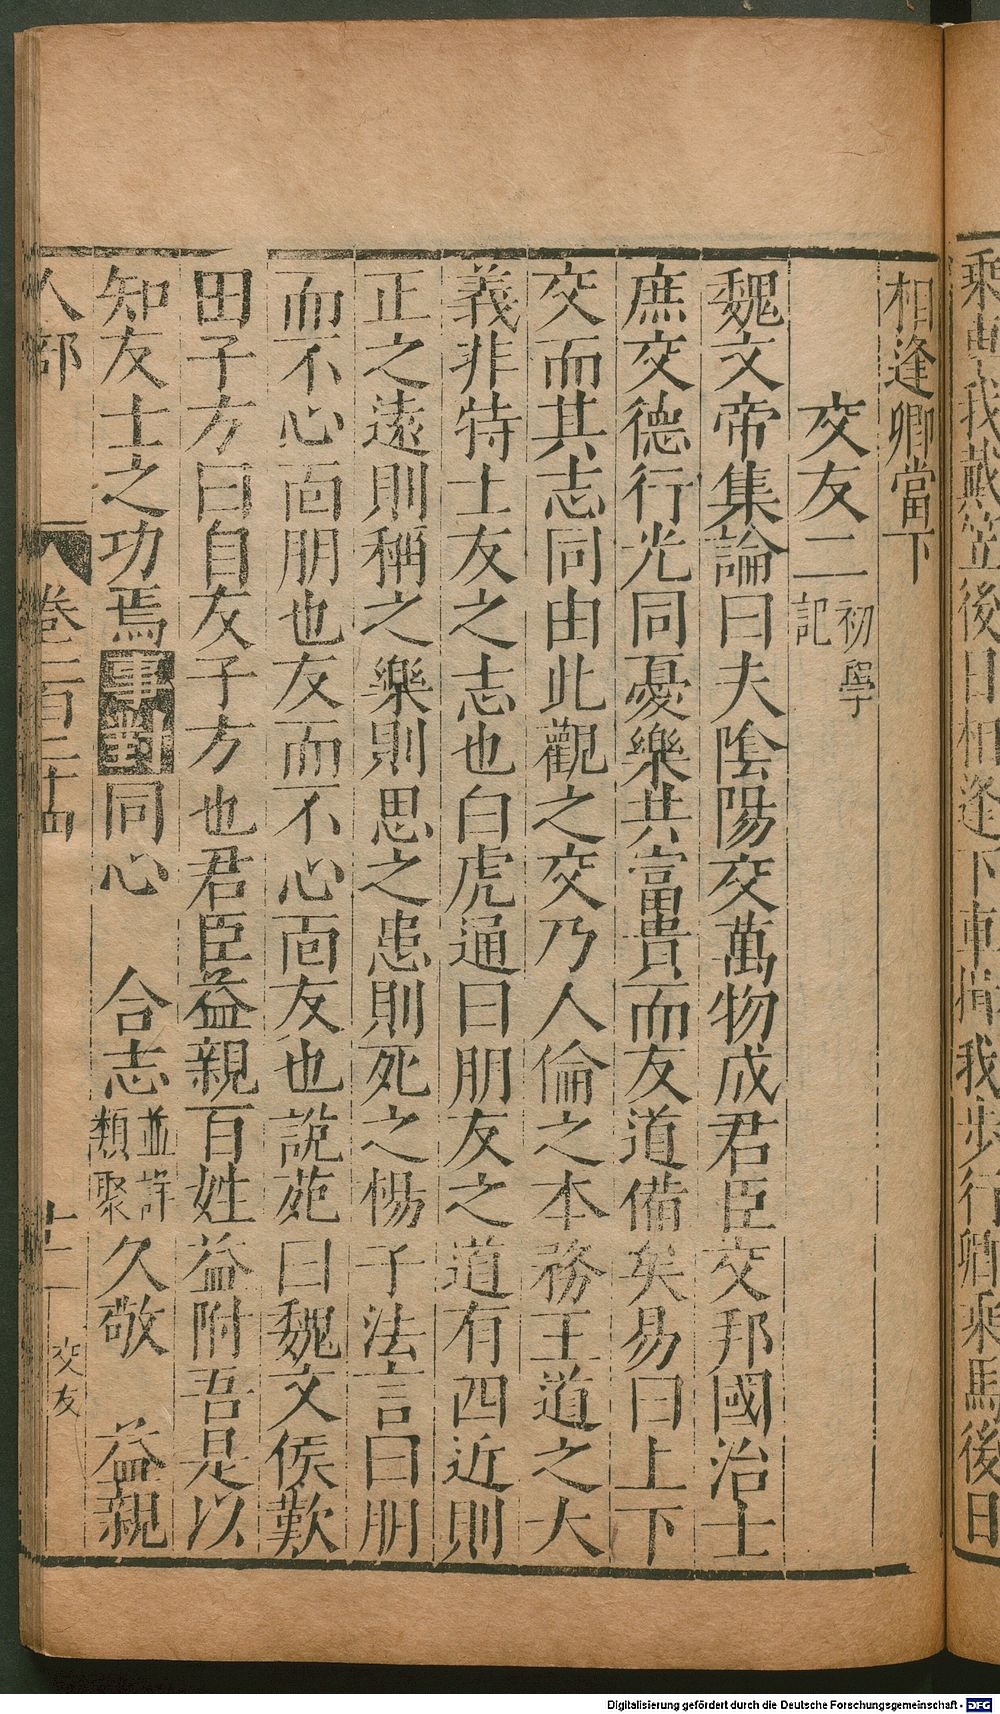 乘車我戴笠後日相逢下車揖我步行卿乘馬後日
相逢卿當下
交友二 初學記
魏文帝集論曰夫陰陽交萬物成君臣交邦國治士
庶交德行光同憂樂共富貴而友道備矣易曰上下
交而其志同由此觀之交乃人倫之本務王道之大
義非特士友之志也白虎通曰朋友之道有四近則
正之遠則稱之樂則思之患則死之惕子法言曰朋
而不心面朋也友而不心面友也說苑曰魏文侯歎
田子方曰自友子方也君臣益親百姓益附吾是以
知友士之功焉事對同心 合志並詳類聚久敬 益親
人部 卷二百三十四 十一 交友
Digitalisierung gefördert durch die Deutsche Forschungsgemeinschaft - DFG